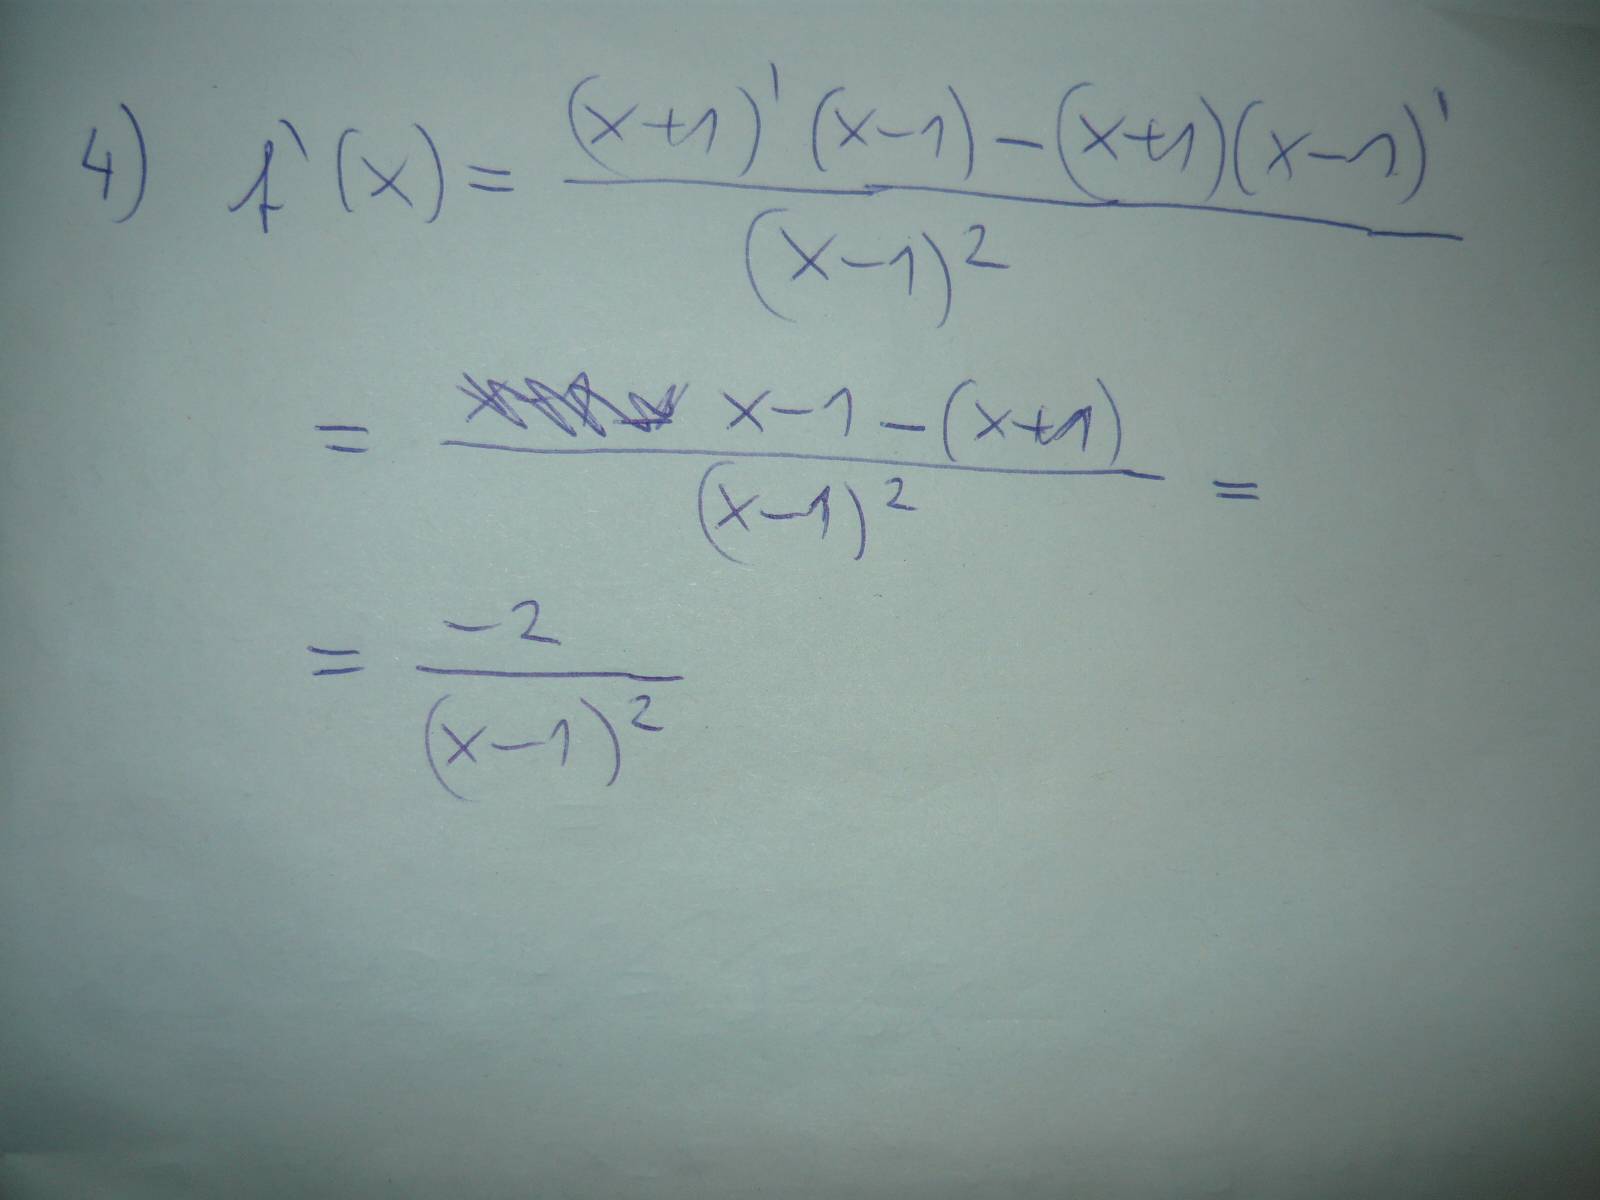 4) f'(x) = \frac{(x+1)'(x-1)-(x+1)(x-1)'}{(x-1)^2}
= \frac{x-1-(x+1)}{(x-1)^2} =
= \frac{-2}{(x-1)^2}